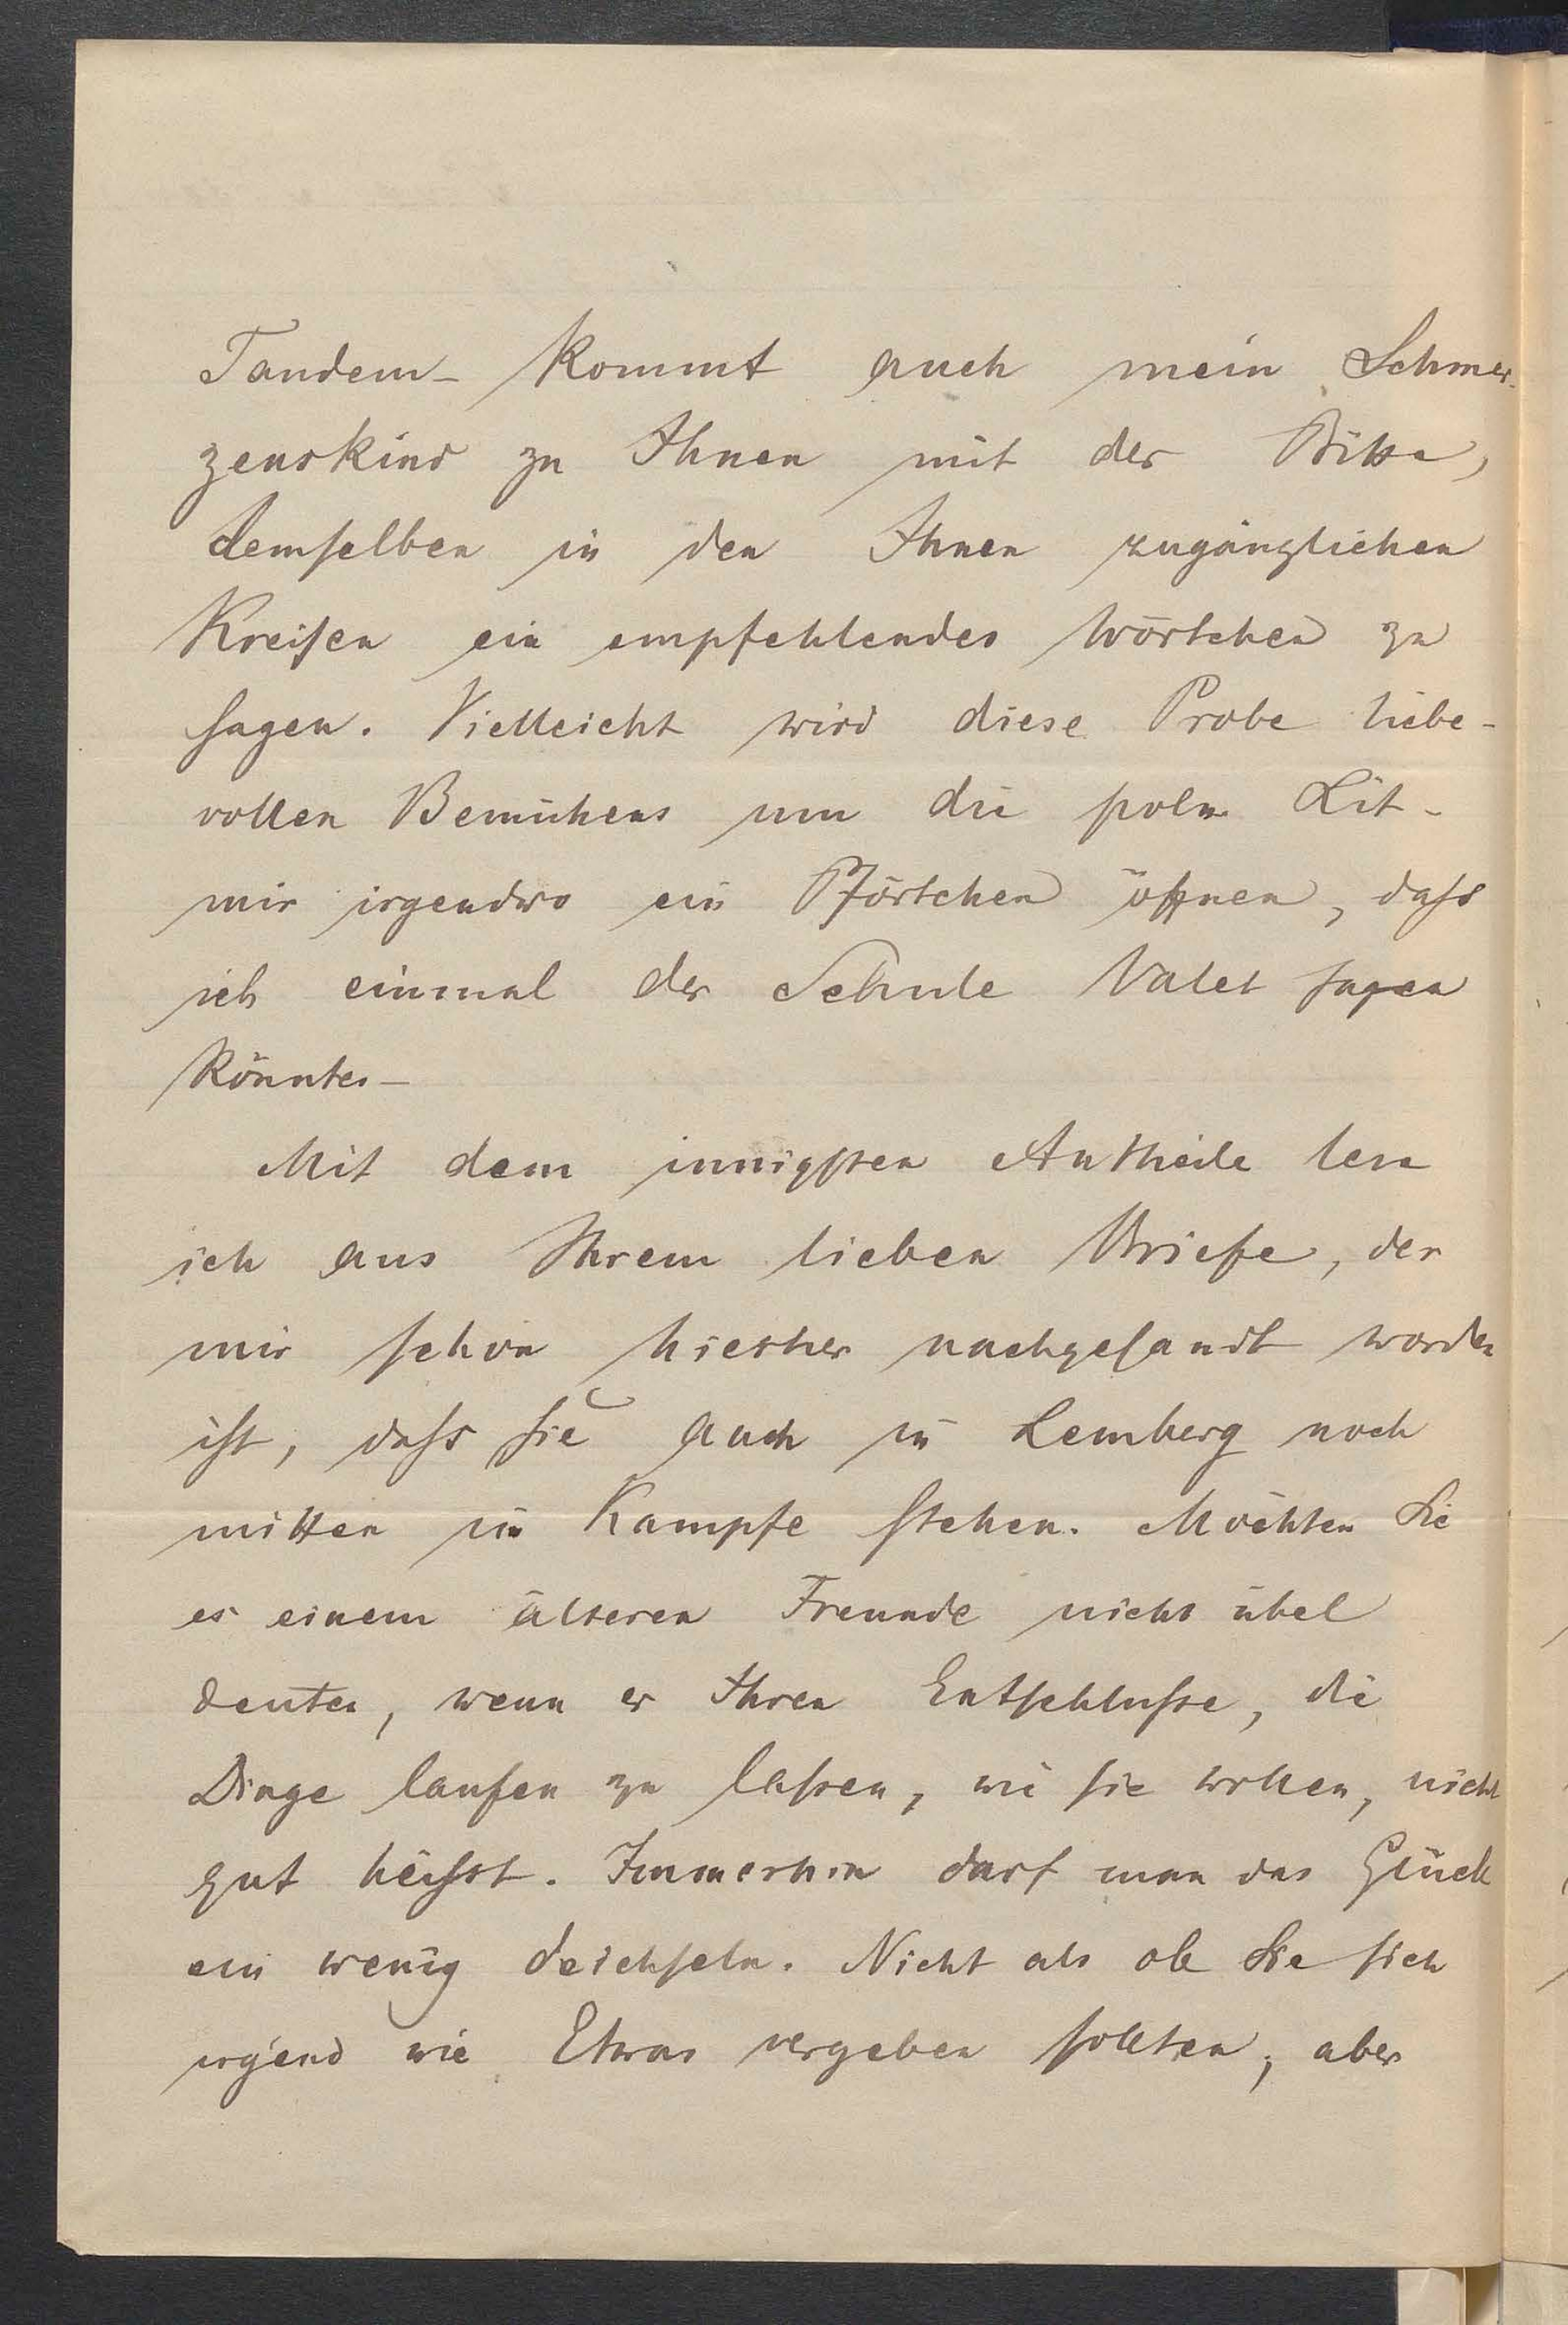 Tandem – kommt auch mein Schmer-
zenskind zu Ihnen mit der Bitte,
demselben in den Ihnen zugänglichen
Kreisen ein empfehlendes Wörtchen zu
sagen. Vielleicht wird diese Probe liebe-
vollen Bemühens um die poln. Lit-
mir irgendwo ein Pförtchen öffnen, dass
ich einmal der Schule Valet sagen
könnte. –
Mit dem innigsten Antheile lese
ich aus Ihrem lieben Briefe, der
mir schon hierher nachgesandt worden
ist, dass Sie auch in Lemberg noch
mitten im Kampfe stehen. Möchten Sie
es einem älteren Freunde nicht übel
deuten, wenn er Ihren Entschlusse, die
Dinge laufen zu lassen, wie sie wollen, nicht
gut heisst. Immerhin darf man das Glück
ein wenig deichseln. Nicht als ob Sie sich
irgend wie Etwas vergeben sollten, aber